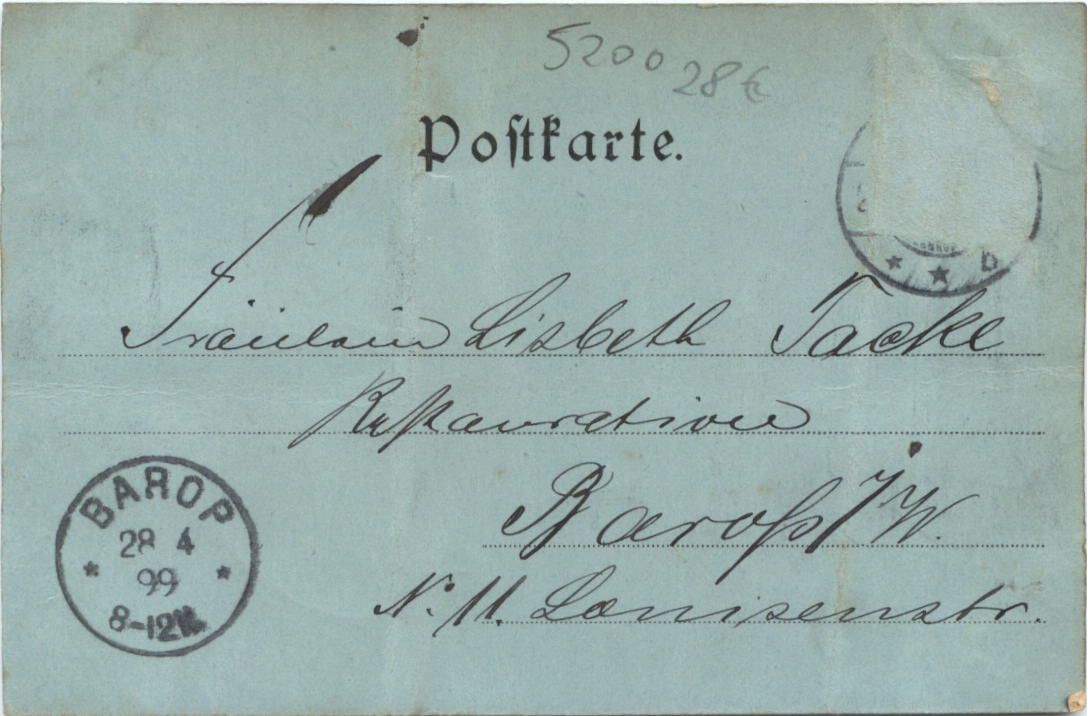 5200
28 €
Postkarte.
Fräulein Lisbeth Tacke
Restauration
Barop i/W.
N. 11. Louisenstr.
BAROP
28 4
99
8-12N.
* * b